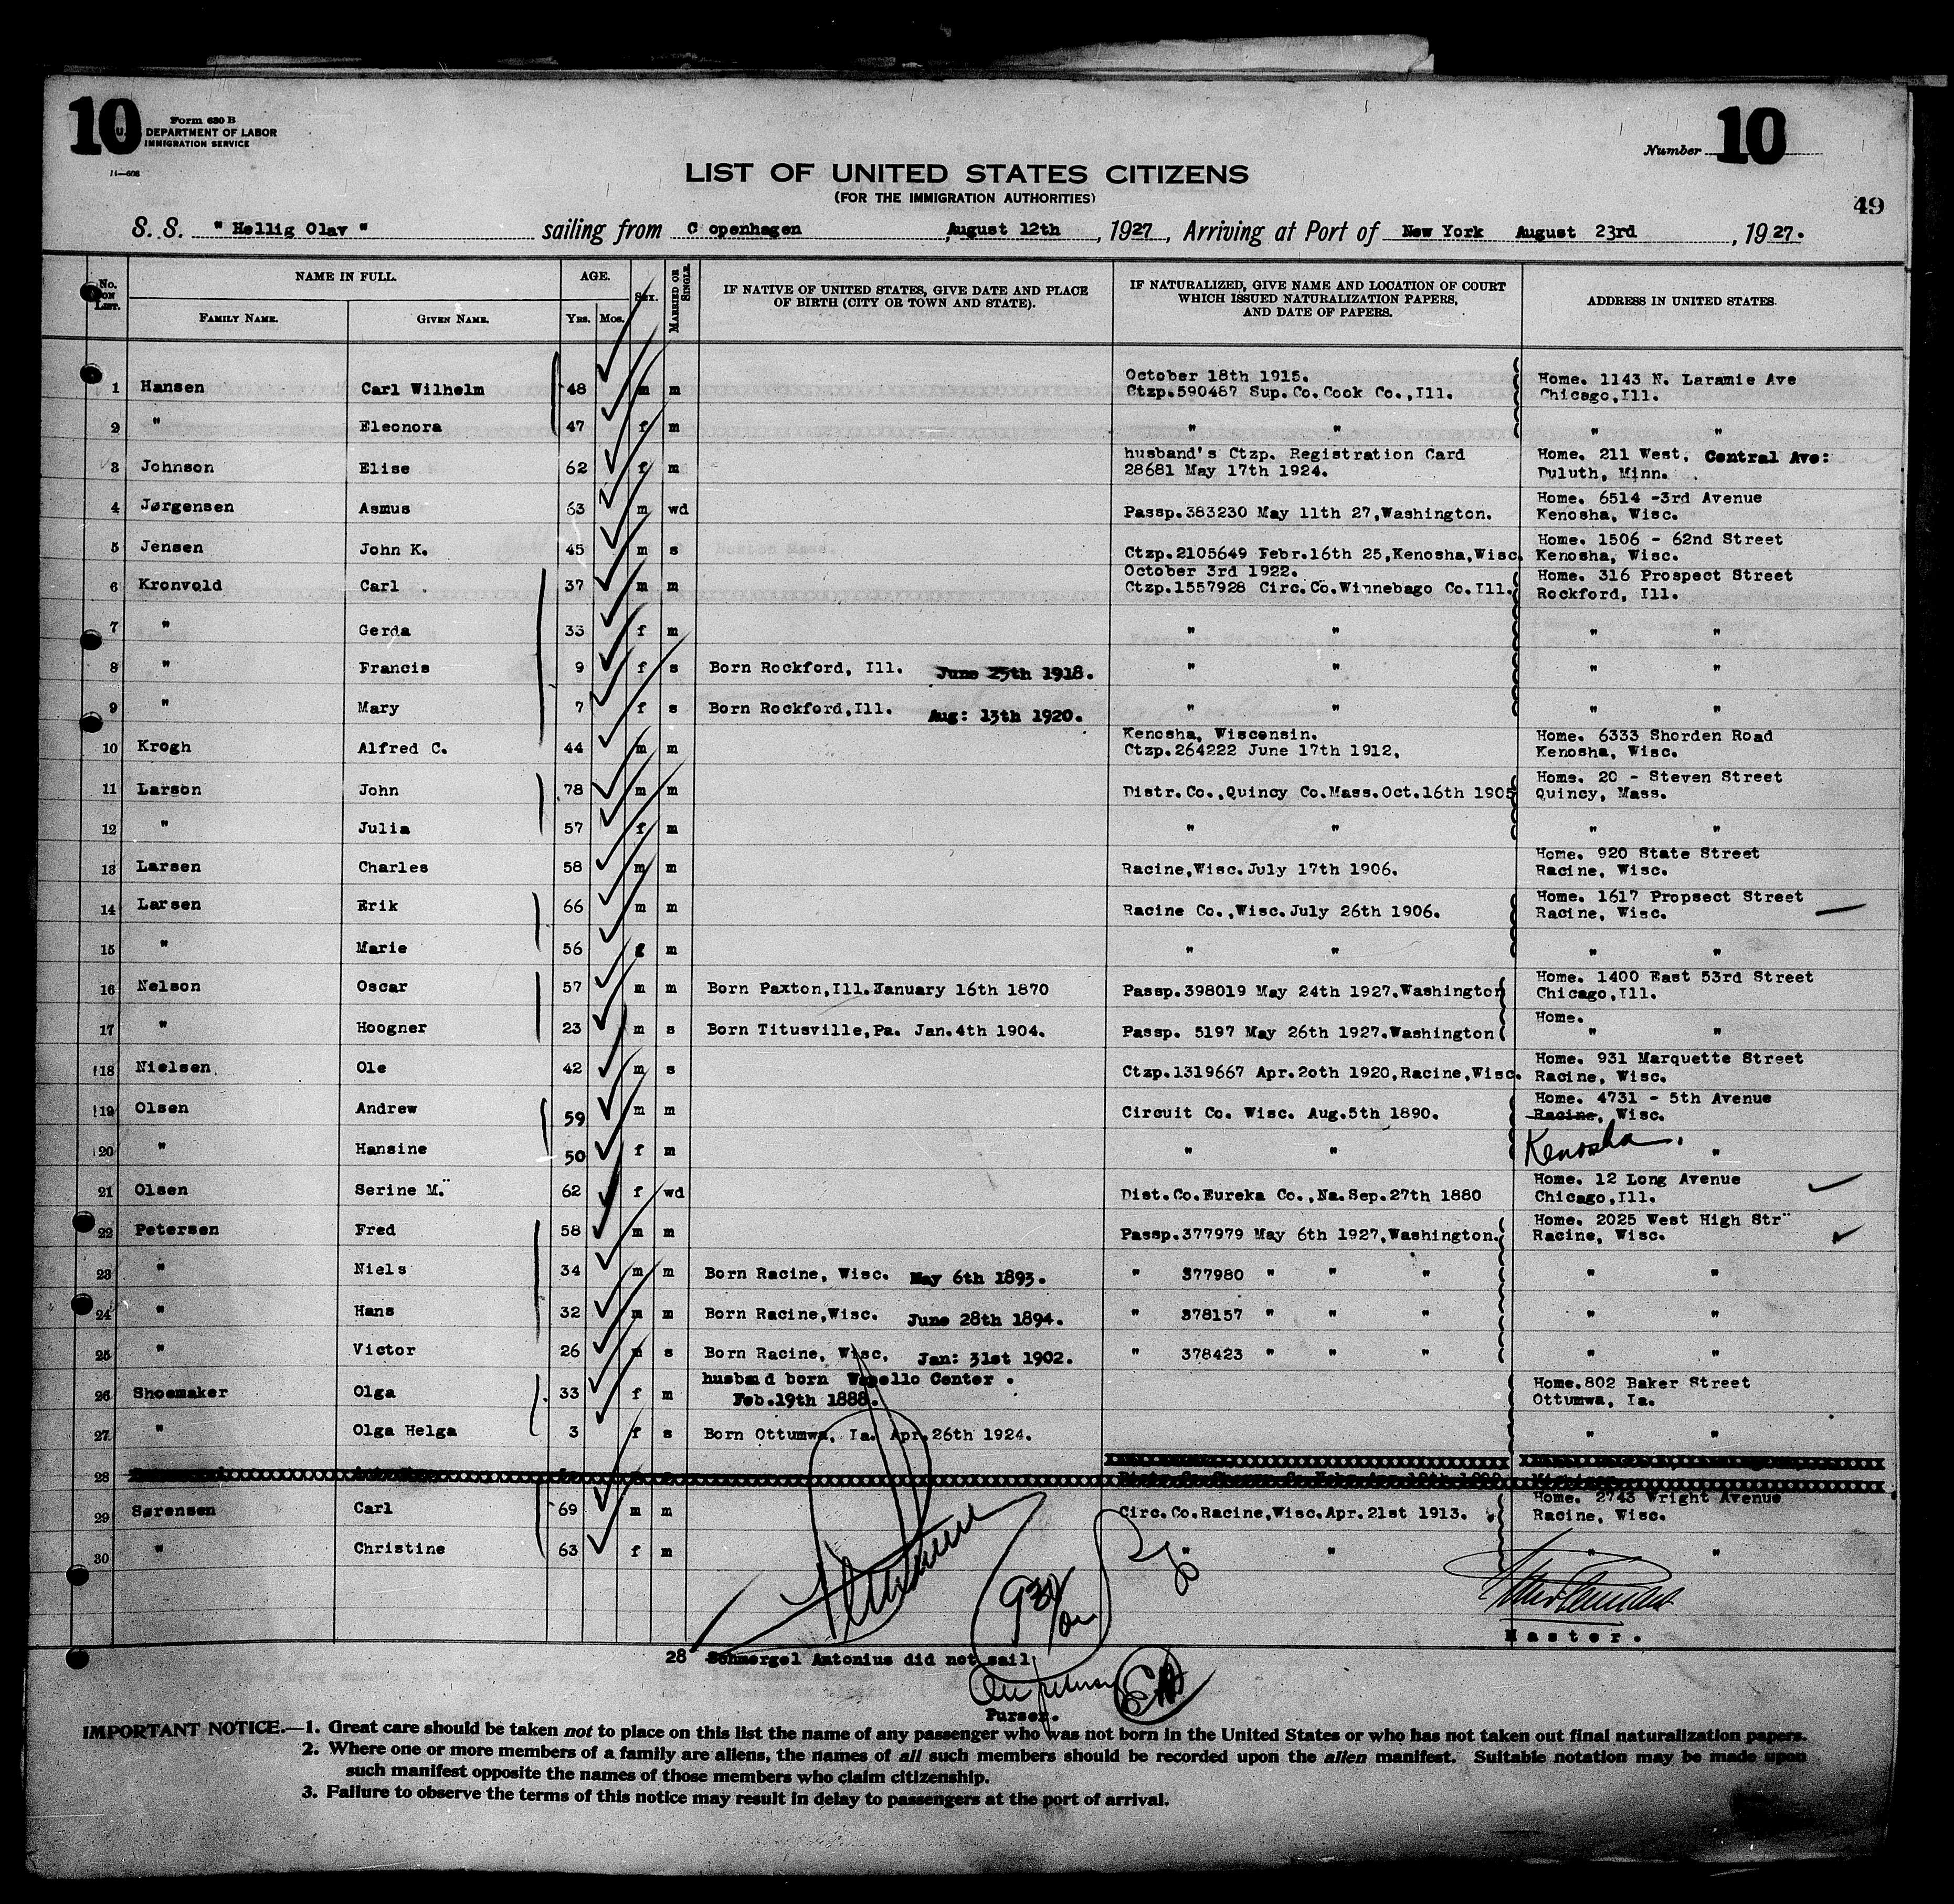 10
U. S. DEPARTMENT OF LABOR
Form 630 B
IMMIGRATION SERVICE
14—608
Number 10
49
LIST OF UNITED STATES CITIZENS
(FOR THE IMMIGRATION AUTHORITIES)
S. S. " Hellig Olav " sailing from C openhagen , August 12th , 1927 , Arriving at Port of New York August 23rd , 1927.
No. on List. NAME IN FULL. AGE. Sex. MARRIED OR SINGLE. IF NATIVE OF UNITED STATES, GIVE DATE AND PLACE OF BIRTH (CITY OR TOWN AND STATE). IF NATURALIZED, GIVE NAME AND LOCATION OF COURT WHICH ISSUED NATURALIZATION PAPERS, AND DATE OF PAPERS. ADDRESS IN UNITED STATES.
FAMILY NAME. GIVEN NAME. Yrs. Mos.
October 18th 1915. Home. 1143 N. Laramie Ave
1 Hansen Carl Wilhelm 48 m m Ctzp.590467 Sup.Co.Cook Co.,Ill. Chicago,Ill.
2 " Eleonora 47 f m " " " "
husband's Ctzp. Registration Card Home. 211 West. Central Ave:
3 Johnson Elise 62 f m 28681 May 17th 1924. Duluth, Minn.
Home. 6514 -3rd Avenue
4 Jørgensen Asmus 63 m wd Passp.383230 May 11th 27,Washington. Kenosha, Wisc.
Home. 1506 - 62nd Street
5 Jensen John K. 45 m s Ctzp.2105649 Febr.16th 25,Kenosha,Wisc. Kenosha, Wisc.
October 3rd 1922. Home. 316 Prospect Street
6 Kronvold Carl 37 m m Ctzp.1557928 Circ.Co.Winnebago Co.Ill. Rockford, Ill.
7 " Gerda 33 f m " " " "
8 " Francis 9 f s Born Rockford, Ill. June 25th 1918. " " " "
9 " Mary 7 f s Born Rockford,Ill. Aug: 13th 1920. " " " "
Kenosha, Wisconsin. Home. 6333 Shorden Road
10 Krogh Alfred C. 44 m m Ctzp.264222 June 17th 1912. Kenosha, Wisc.
Home. 20 - Steven Street
11 Larson John 78 m m Distr.Co.,Quincy Co.Mass.Oct.16th 1905 Quincy, Mass.
12 " Julia 57 f m " " " "
Home. 920 State Street
13 Larsen Charles 58 m m Racine,Wisc.July 17th 1906. Racine, Wisc.
Home. 1617 Propsect Street
14 Larsen Erik 66 m m Racine Co.,Wisc.July 26th 1906. Racine, Wisc.
15 " Marie 56 m " " " "
Home. 1400 East 53rd Street
16 Nelson Oscar 57 m m Born Paxton,Ill.January 16th 1870 Passp.398019 May 24th 1927.Washington Chicago,Ill.
Home.
17 " Hoogner 23 m s Born Titusville,Pa. Jan.4th 1904. Passp. 5197 May 26th 1927.Washington " "
Home. 931 Marquette Street
18 Nielsen Ole 42 m s Ctzp.1319667 Apr.20th 1920,Racine,Wisc. Racine, Wisc.
Home. 4731 - 5th Avenue
19 Olsen Andrew 59 m m Circuit Co. Wisc. Aug.5th 1890. Racine, Wisc.
20 " Hansine 50 f m " " Kenosha. "
Home. 12 Long Avenue
21 Olsen Serine M." 62 f wd Dist.Co.Eureka Co.,Na.Sep.27th 1880 Chicago,Ill.
Home. 2025 West High Str"
22 Petersen Fred 58 m m Passp.377979 May 6th 1927,Washington. Racine, Wisc.
23 " Niels 34 m m Born Racine, Wisc. May 6th 1893. " 377980 " " " " "
24 " Hans 32 m m Born Racine,Wisc. June 28th 1894. " 378157 " " " " "
25 " Victor 26 m s Born Racine, Wisc. Jan: 31st 1902. " 378423 " " " " "
husband born Wapello Center . Home.802 Baker Street
26 Shoemaker Olga 33 f m Feb.19th 1888. Ottumwa, Ia.
27 " Olga Helga 3 f s Born Ottumwa, Ia. Apr.26th 1924. " "
28
Home. 2743 Wright Avenue
29 Sørensen Carl 69 m m Circ.Co.Racine,Wisc.Apr.21st 1913. Racine, Wisc.
30 " Christine 63 f m " " " "
930
Master.
28 Schmergel Antonius did not sail
Purser.
IMPORTANT NOTICE.—1. Great care should be taken not to place on this list the name of any passenger who was not born in the United States or who has not taken out final naturalization papers.
2. Where one or more members of a family are aliens, the names of all such members should be recorded upon the alien manifest. Suitable notation may be made upon
such manifest opposite the names of those members who claim citizenship.
3. Failure to observe the terms of this notice may result in delay to passengers at the port of arrival.